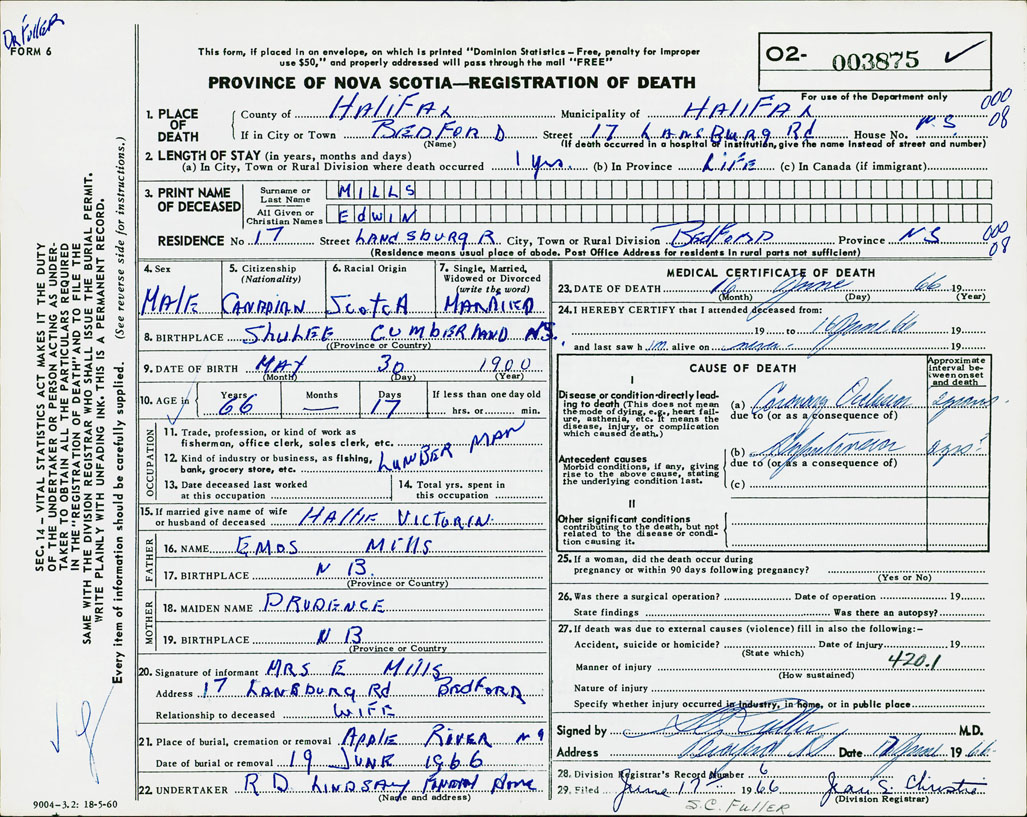 Dr Fuller
FORM 6
This form, if placed in an envelope, on which is printed "Dominion Statistics – Free, penalty for improper
use $50," and properly addressed will pass through the mail "FREE"
PROVINCE OF NOVA SCOTIA—REGISTRATION OF DEATH
O2- 003875 ✓
For use of the Department only
1. PLACE OF DEATH
County of HALIFAX Municipality of HALIFAX 000 08
If in City or Town BEDFORD Street 17 LANSBURG Rd House No. N.S.
(Name) (If death occurred in a hospital or institution, give the name instead of street and number)
2. LENGTH OF STAY (in years, months and days)
(a) In City, Town or Rural Division where death occurred 1 yrs. (b) In Province LIFE (c) In Canada (if immigrant)
3. PRINT NAME OF DECEASED
Surname or Last Name MILLS
All Given or Christian Names EdWIN
RESIDENCE No 17 Street LANDSBURG R City, Town or Rural Division BEDFORD Province NS 000 08
(Residence means usual place of abode. Post Office Address for residents in rural parts not sufficient)
4. Sex MALE
5. Citizenship (Nationality) CANADIAN
6. Racial Origin SCOTCH
7. Single, Married, Widowed or Divorced (write the word) MARRIED
8. BIRTHPLACE SHULEE CUMBERLAND NS.
(Province or Country)
9. DATE OF BIRTH MAY 30 1900
(Month) (Day) (Year)
10. AGE in Years 66 Months — Days 17 If less than one day old hrs. or min.
OCCUPATION
11. Trade, profession, or kind of work as
fisherman, office clerk, sales clerk, etc.
12. Kind of industry or business, as fishing,
bank, grocery store, etc. LUMBER MAN
13. Date deceased last worked
at this occupation
14. Total yrs. spent in
this occupation
15. If married give name of wife
or husband of deceased HALLIE VICTORIN
FATHER
16. NAME EMOS MIlls
17. BIRTHPLACE N B.
(Province or Country)
MOTHER
18. MAIDEN NAME PRUDENCE
19. BIRTHPLACE N B
(Province or Country
20. Signature of informant MRS E Mills
Address 17 LANSBURG Rd BEDFORD
Relationship to deceased WIFE
21. Place of burial, cremation or removal APPLE RIVER
Date of burial or removal 19 JUNE 1966
22. UNDERTAKER R D LINDSAY FUNERAL HOME
(Name and address)
9004-3.2: 18-5-60
MEDICAL CERTIFICATE OF DEATH
23. DATE OF DEATH 16 June 66 19
(Month) (Day) (Year)
24. I HEREBY CERTIFY that I attended deceased from:
19 to 16 June 66 19
and last saw him alive on never 19
CAUSE OF DEATH
Approximate interval between onset and death
I
Disease or condition directly leading to death (This does not mean the mode of dying, e.g., heart failure, asthenia, etc. It means the disease, injury, or complication which caused death.)
(a) Coronary Occlusion
due to (or as a consequence of)
Antecedent causes
Morbid conditions, if any, giving rise to the above cause, stating the underlying condition last.
(b) Hypertension
due to (or as a consequence of)
(c)
II
Other significant conditions
contributing to the death, but not related to the disease or condition causing it.
25. If a woman, did the death occur during
pregnancy or within 90 days following pregnancy?
(Yes or No)
26. Was there a surgical operation? Date of operation 19
State findings Was there an autopsy?
27. If death was due to external causes (violence) fill in also the following:–
Accident, suicide or homicide? Date of injury 19
(State which)
Manner of injury 420.1
(How sustained)
Nature of injury
Specify whether injury occurred in industry, in home, or in public place
Signed by S C Fuller M.D.
Address Bedford NS Date 17 June 1966
28. Division Registrar's Record Number 6
29. Filed June 17th 1966 Jean S. Christie
(Division Registrar)
S.C. FULLER
SEC. 14 – VITAL STATISTICS ACT MAKES IT THE DUTY
OF THE UNDERTAKER OR PERSON ACTING AS UNDER-
TAKER TO OBTAIN ALL THE PARTICULARS REQUIRED
IN THE "REGISTRATION OF DEATH" AND TO FILE THE
SAME WITH THE DIVISION REGISTRAR WHO SHALL ISSUE THE BURIAL PERMIT.
WRITE PLAINLY WITH UNFADING INK. THIS IS A PERMANENT RECORD.
Every item of information should be carefully supplied. (See reverse side for instructions.)